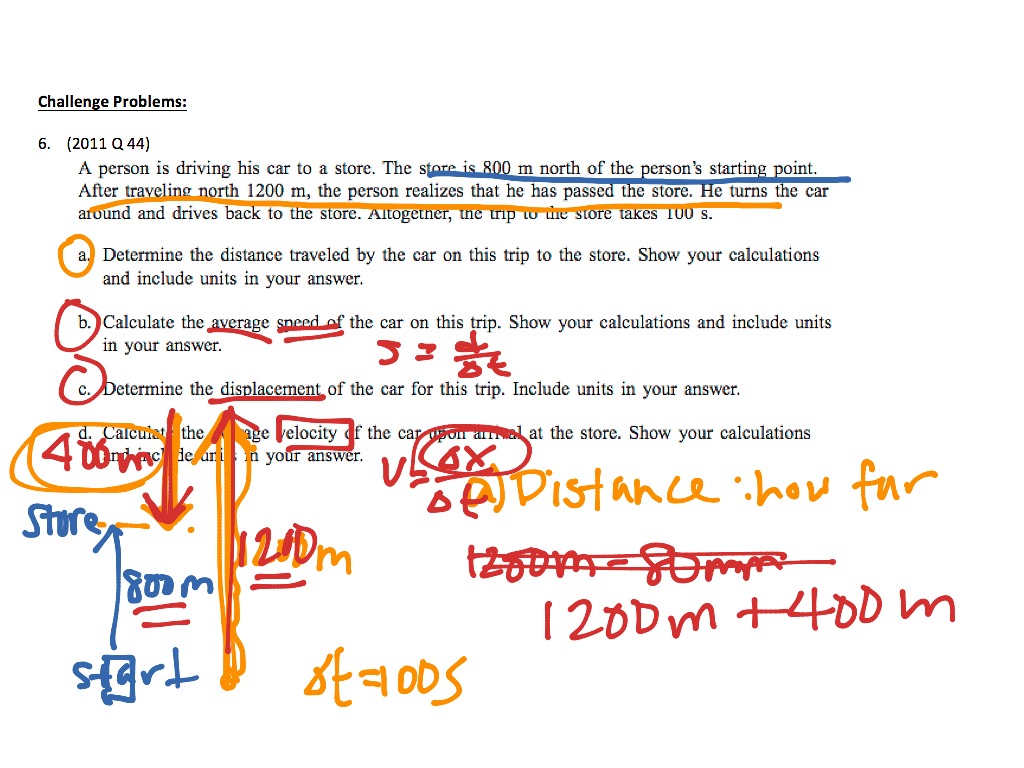 Challenge Problems:
6. (2011 Q 44)
A person is driving his car to a store. The store is 800 m north of the person's starting point.
After traveling north 1200 m, the person realizes that he has passed the store. He turns the car
around and drives back to the store. Altogether, the trip to the store takes 100 s.
a. Determine the distance traveled by the car on this trip to the store. Show your calculations
and include units in your answer.
b. Calculate the average speed of the car on this trip. Show your calculations and include units
in your answer.
s = d/Δt
c. Determine the displacement of the car for this trip. Include units in your answer.
d. Calculate the average velocity of the car upon arrival at the store. Show your calculations
and include units in your answer.
400m
v = Δx/Δt
a) Distance : how far
store
1200m
1200m - 80mm
800m
1200m + 400m
start
Δt = 100s